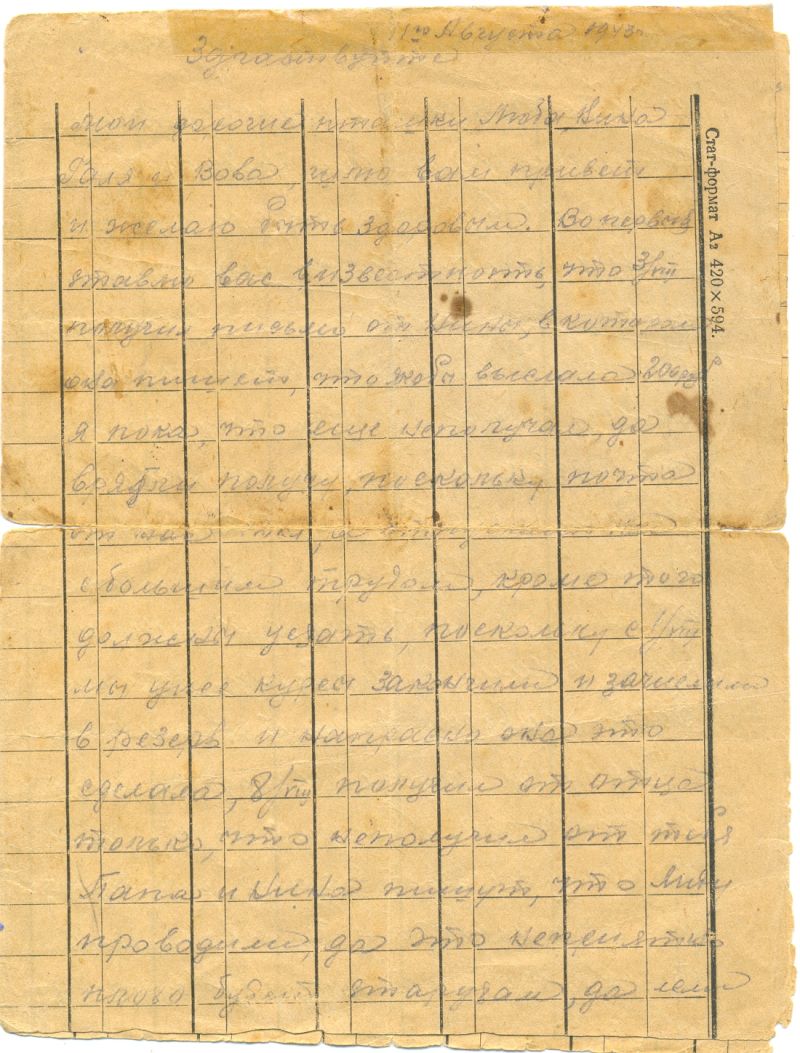 11го Августа 1943г.
Здраствуйте
мои дорогие пташки Люба, Нина
Галя и Вова, шлю вам привет
и желаю быть здоровым. Во первых
ставлю вас в известность, что 3/VIII
получил письмо от Нины, в котором
она пишет, что якобы выслала 200 руб
я пока, что еще неполучал, да
врятли получу, поскольку почта
от нас
с большим трудом, кроме того
должны уезать, поскольку с 1/VIII
мы уже курсы закончили и зачислили
в резерв и напрасно она это
сделала, 8/VIII получил от отца
только, что неполучил от тебя
Папа и Нина пишут, что
проводили, да это неприятно
плохо будет старухам, да если
Стат-формат А2 420×594.